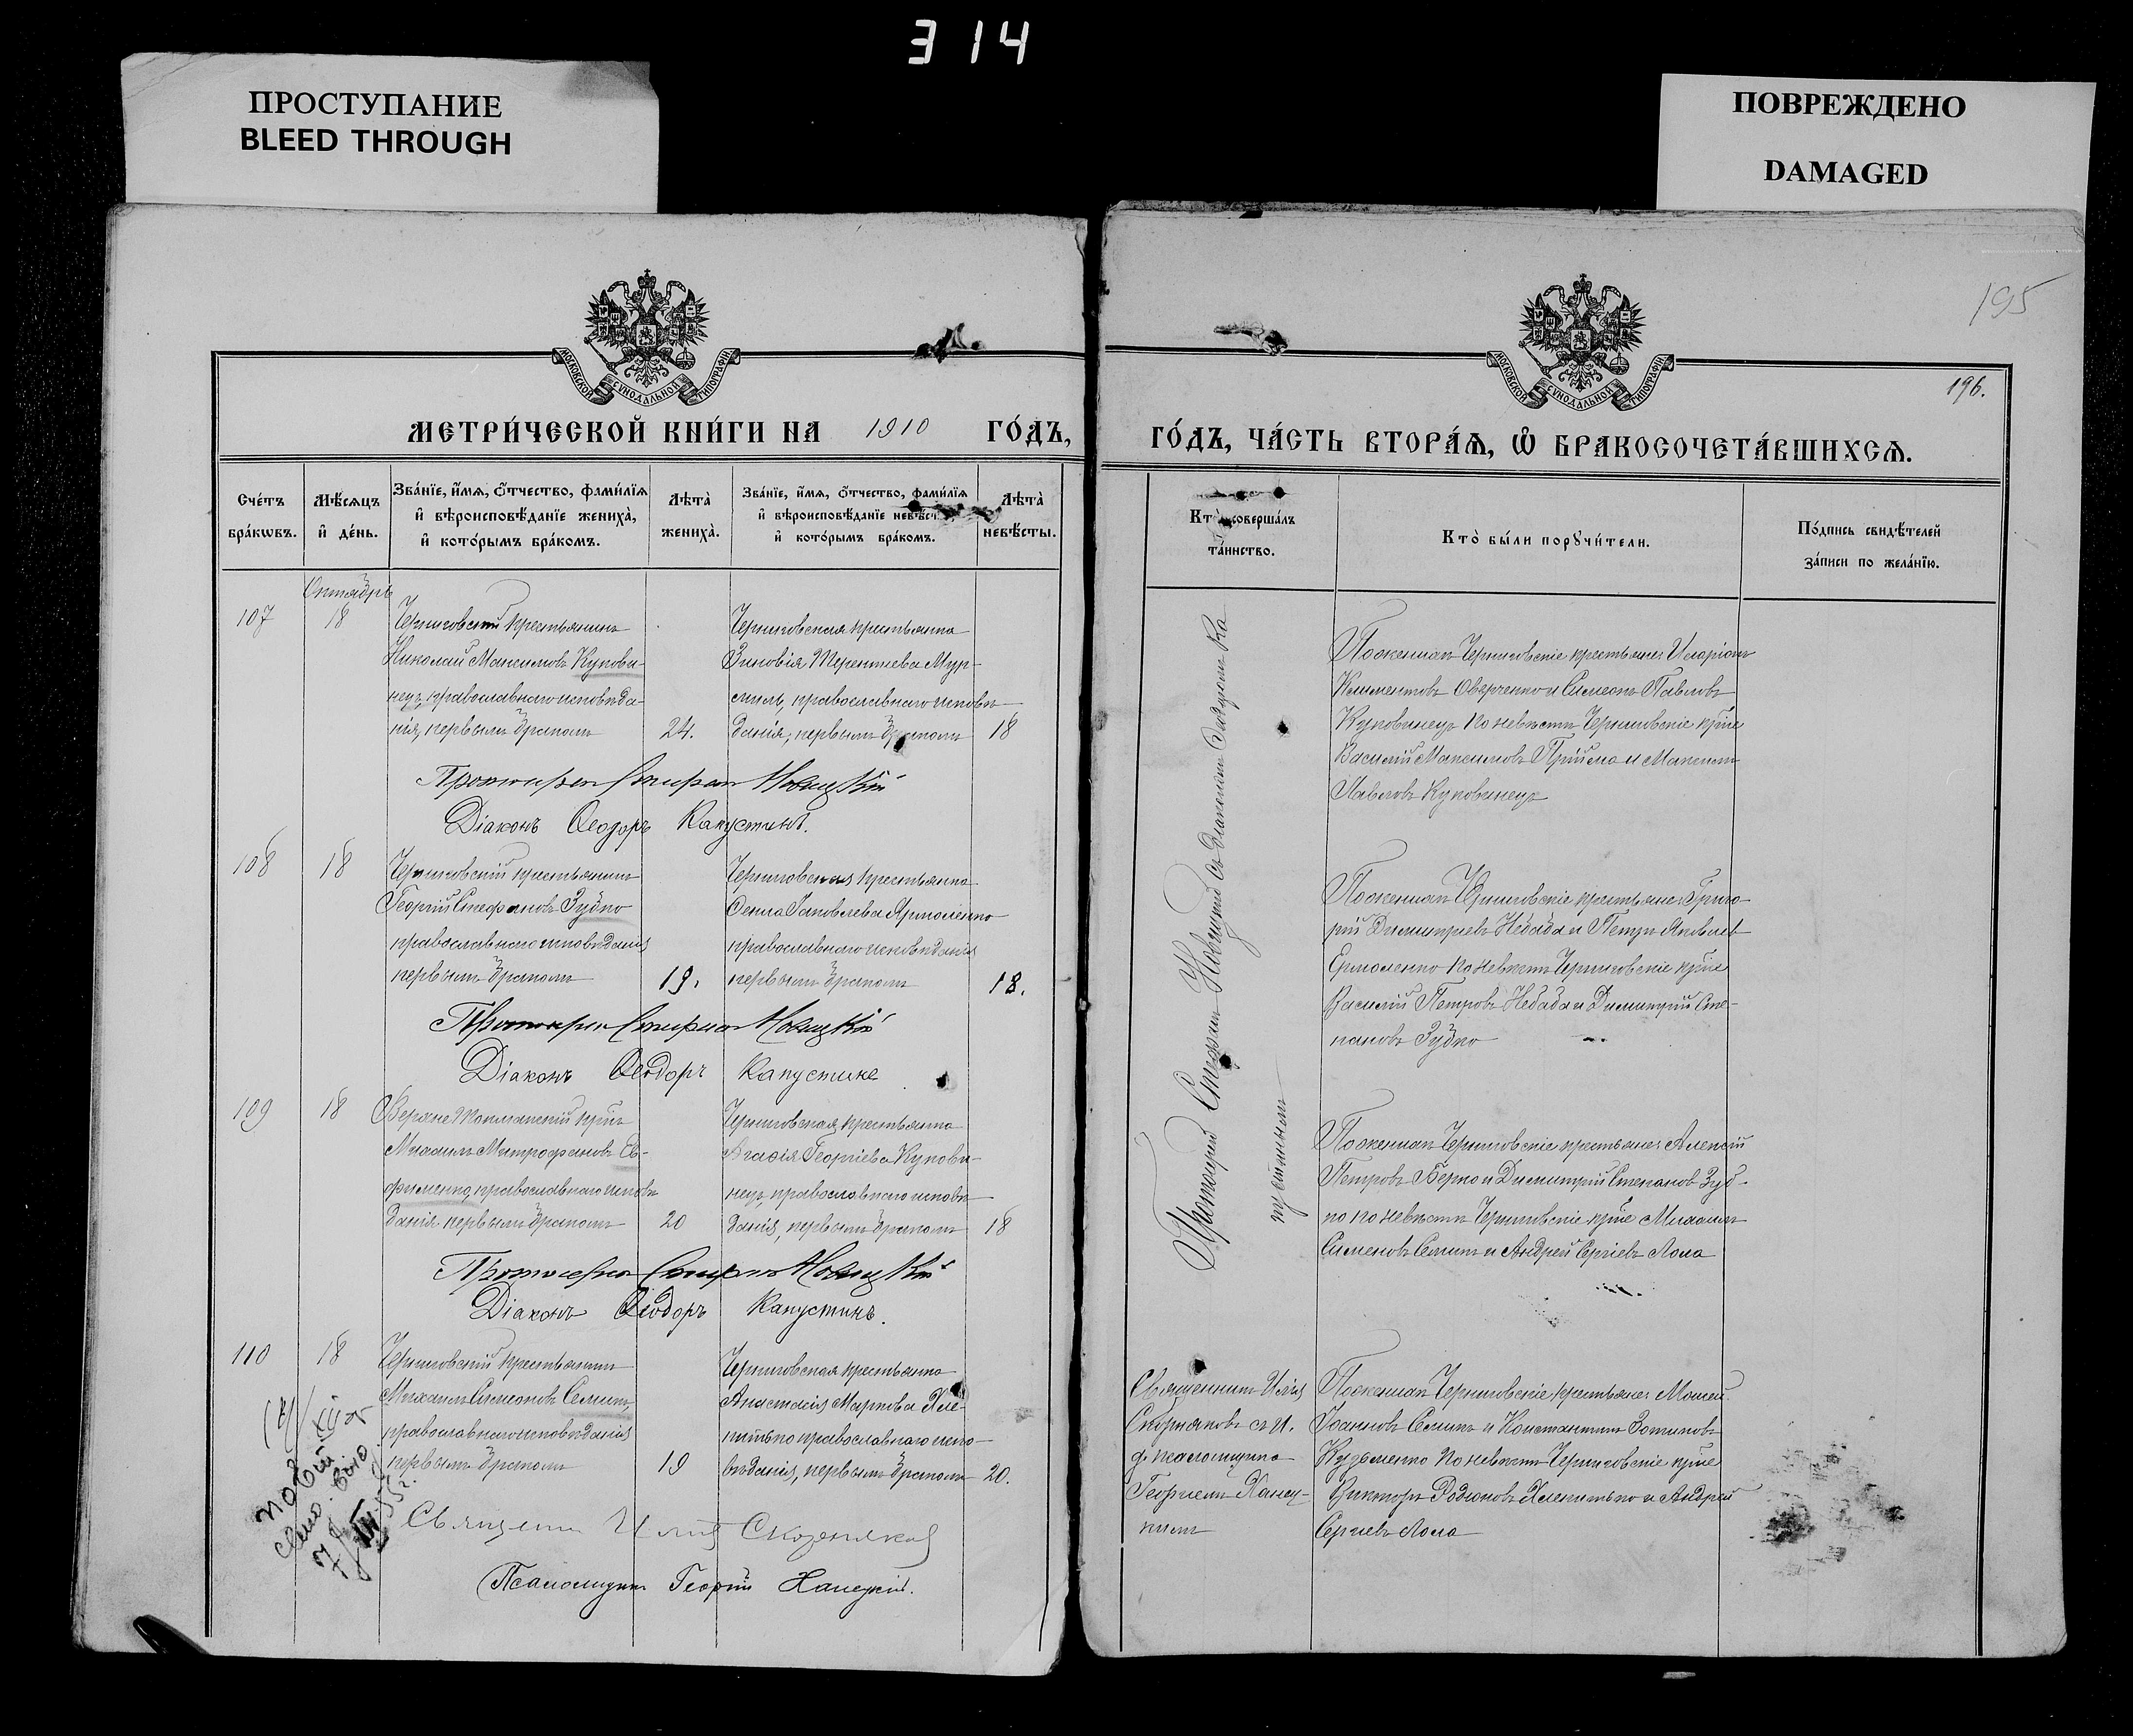 314
ПРОСТУПАНИЕ
BLEED THROUGH
ПОВРЕЖДЕНО
DAMAGED
195
МОСКОВСКОЙ СУНОДАЛЬНОЙ ТИПОГРАФІИ
МЕТРИ́ЧЕСКОЙ КНИ́ГИ НА 1910 ГО́ДЪ,
Сче́тъ бра́кѡвъ.
Мѣ́сяцъ и҆ де́нь.
Зва́нїе, и҆́мѧ, ѻ҆́тчество, фами́лїѧ
и҆ вѣроисповѣ́данїе жениха̀,
и҆ кото́рымъ бра́комъ.
Лѣта̀ жениха̀.
Зва́нїе, и҆́мѧ, ѻ҆́тчество, фами́лїѧ
и҆ вѣроисповѣ́данїе
и҆ кото́рымъ бра́комъ.
Лѣта̀ невѣ́сты.
Октябрь
107
18
Черниговскій крестьянинъ
Николай Максимовъ Кукови-
нецъ, православнаго исповѣда-
нія, первымъ бракомъ
24.
Черниговская крестьянка
Зиновія Терентіева Мур-
православнаго исповѣ-
данія, первымъ бракомъ
18
Протоіерей Стефан Новицкій
Діаконъ Ѳеодоръ Капустинъ.
108
18
Черниговскій крестьянинъ
Георгій Стефановъ Зубко
православнаго исповѣданія
первымъ бракомъ
19.
Черниговская крестьянка
Яковлева Ярмоленко
православнаго исповѣданія
первымъ бракомъ
18.
Протоіерей Стефан Новицкій
Діаконъ Ѳеодоръ Капустинъ
109
18
Верхне Токмакскій кр-нъ
Михаилъ Митрофановъ Ев-
фименко, православнаго исповѣ
данія первымъ бракомъ
20
Черниговская крестьянка
Агафія Георгіева Кукови-
нецъ, православнаго исповѣ
данія, первымъ бракомъ
18
Протоіерей Стефан Новицкій
Діаконъ Ѳеодоръ Капустинъ.
110
18
Черниговскій крестьянинъ
Михаилъ Симеоновъ Семикъ,
православнаго исповѣданія
первымъ бракомъ
19
Черниговская крестьянка
Анастасія Маркова Хле-
православнаго испо-
вѣданія, первымъ бракомъ
20.
Священ Илія Скорняков
Псаломщикъ Георгій Ханецкій.
МОСКОВСКОЙ СУНОДАЛЬНОЙ ТИПОГРАФІИ
196.
ГО́ДЪ, ЧА́СТЬ ВТОРА́Ѧ, Ѡ҆ БРАКОСОЧЕТА́ВШИХСѦ.
Кто̀ соверша́лъ
та́инство.
Кто̀ бы́ли порꙋчи́тели.
По́дпись свидѣ́телей
за́писи по жела́нїю.
Протоіерей Стефан Новицкій съ діакономъ Ѳеодоромъ Ка
пустинымъ
По женихѣ Черниговскіе крестьяне: Иларіонъ
Климентовъ Оверченко и Симеонъ Павловъ
Куковинецъ по невѣстѣ Черниговскіе кр-не
Василій Максимовъ Прійма и Максимъ
Павловъ Куковинецъ
По женихѣ Черниговскіе крестьяне: Григо-
рій Димитріевъ Небаба и Петръ Яковлев
Ермоленко по невѣстѣ Черниговскіе кр-не
Василій Петровъ Небаба и Димитрій Сте-
пановъ Зубко
По женихѣ Черниговскіе крестьяне: Алексій
Петровъ и Димитрій Степанов Зуб-
ко по невѣстѣ Черниговскіе кр-не Михаилъ
Сименовъ Семикъ и Андрей Сергіевъ Лола
Священникъ Илія
Скорняковъ съ и.
д. псаломщика
Георгіемъ Ханец-
кимъ
По женихѣ Черниговскіе крестьяне: Моисей
Іоанновъ Семикъ и Константинъ Зотиковъ
Кузьменко по невѣстѣ Черниговскіе кр-не
Викторъ Родіоновъ и Андрей
Сергіевъ Лола